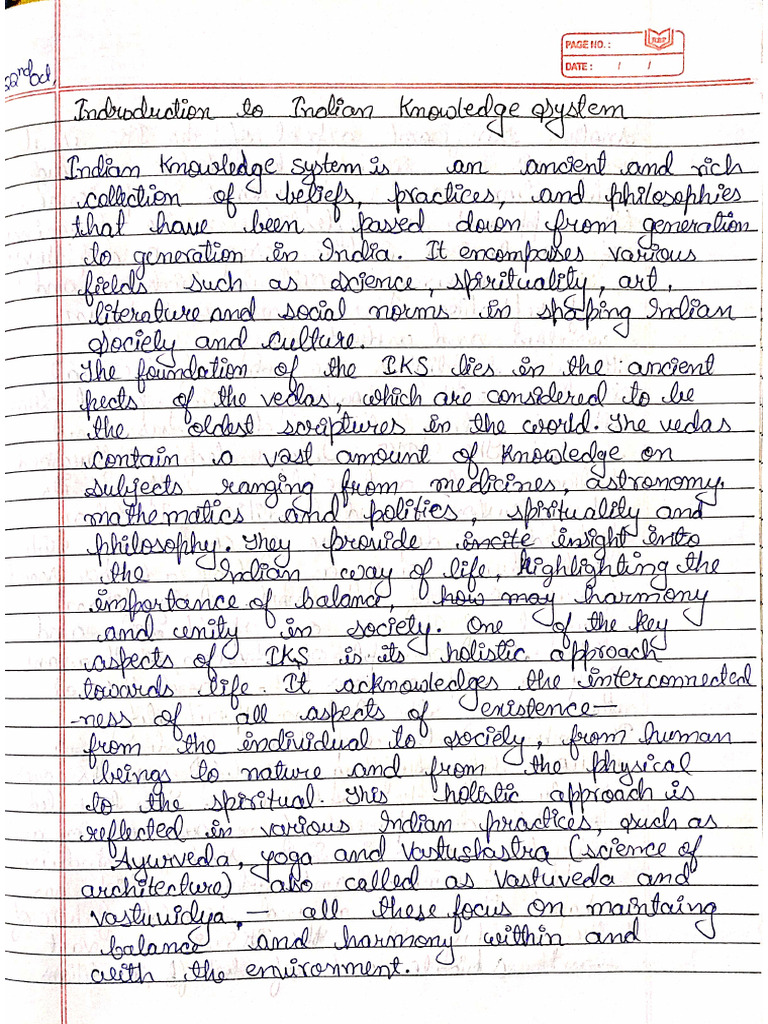 PAGE NO.:
DATE: / /
22nd Oct,
Indroduction to Indian Knowledge System
Indian Knowledge system is an ancient and rich
collection of beliefs, practices, and philosophies
that have been passed down from generation
to generation in India. It encompases various
fields such as science, spirituality, art,
literature and social norms in shaping Indian
society and culture.
The foundation of the IKS lies in the ancient
pects of the vedas, which are considered to be
the oldest scriptures in the world. The vedas
contain a vast amount of knowledge on
subjects ranging from medicines, astronomy,
mathematics and politics, spirituality and
philosophy. They provide incite insight into
the Indian way of life, highlighting the
importance of balance, how may harmony
and unity in society. One of the key
aspects of IKS is its holistic approach
towards life. It acknowledges the interconnected
-ness of all aspects of existence—
from the individual to society, from human
beings to nature and from the physical
to the spiritual. This holistic approach is
reflected in various Indian practices, such as
Ayurveda, yoga and Vastushastra (science of
architecture) also called as Vastuveda and
vastuvidya, — all these focus on maintaing
balance and harmony within and
with the environment.